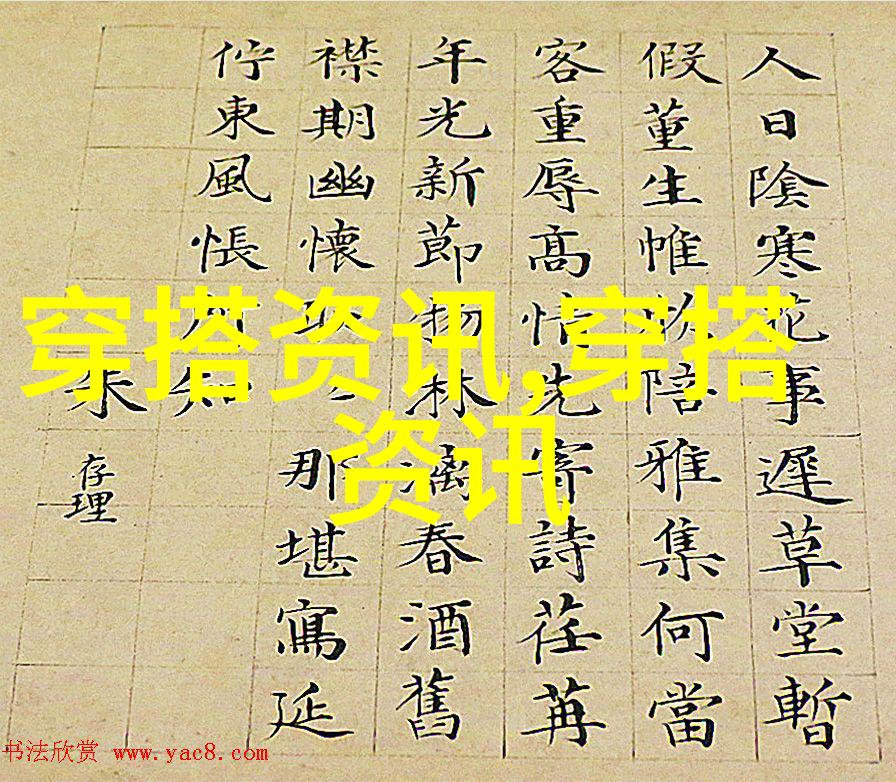 人日陰寒花事遲草堂暫
假董生帷陪雅集何當
客重辱高情先寄詩荏苒
年光新節物林漓春酒舊
襟期幽懷那堪寫延
佇東風悵所知
朱存理
穿搭资讯,穿搭
资讯
书法欣赏 www.yac8.com